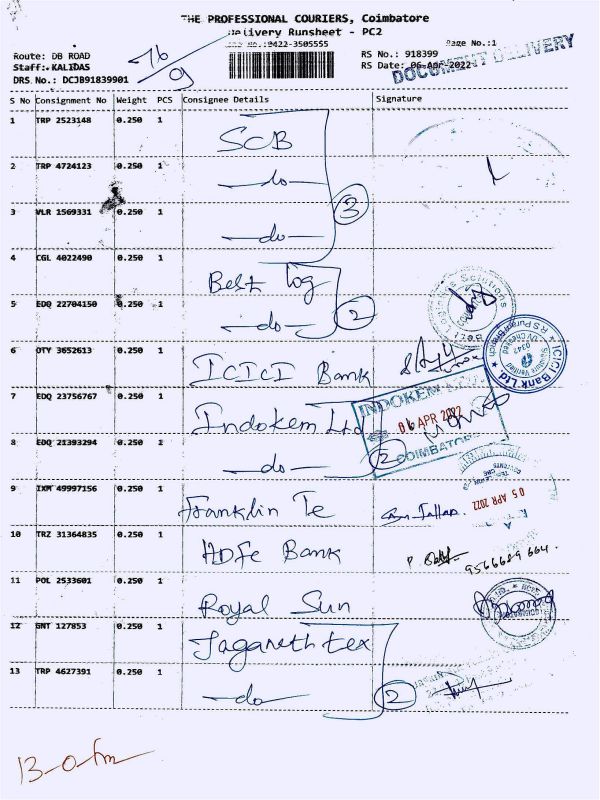 THE PROFESSIONAL COURIERS, Coimbatore
Delivery Runsheet - PC2
0422-3505555
Page No.:1
Route: DB ROAD
Staff: KALIDAS
DRS.No.: DCJB91839901
16/9
RS No.: 918399
RS Date: 06-Apr-2022
DOCUMENT DELIVERY
S No Consignment No Weight PCS Consignee Details Signature
1 TRP 2523148 0.250 1 SCB
2 TRP 4724123 0.250 1 -do-
3
3 VLR 1569331 0.250 1 -do-
4 CGL 4022490 0.250 1 Best log
5 EDQ 22704150 0.250 1 -do-
2
6 OTY 3652613 0.250 1 ICICI Bank
ICICI Bank Ltd.
R S Puram Branch
Signature Verified
0342
UV Checked
7 EDQ 23756767 0.250 1 Indokem Ltd
INDOKEM
06 APR 2022
COIMBATORE
8 EDQ 21393294 0.250 1 -do-
2
9 IXM 49997156 0.250 1 Franklin Te
05 APR 2022
10 TRZ 31364835 0.250 1 HDFC Bank
9566689664
11 POL 2533601 0.250 1 Royal Sun
12 GNT 127853 0.250 1 Jaganath tex
13 TRP 4627391 0.250 1 -do-
2